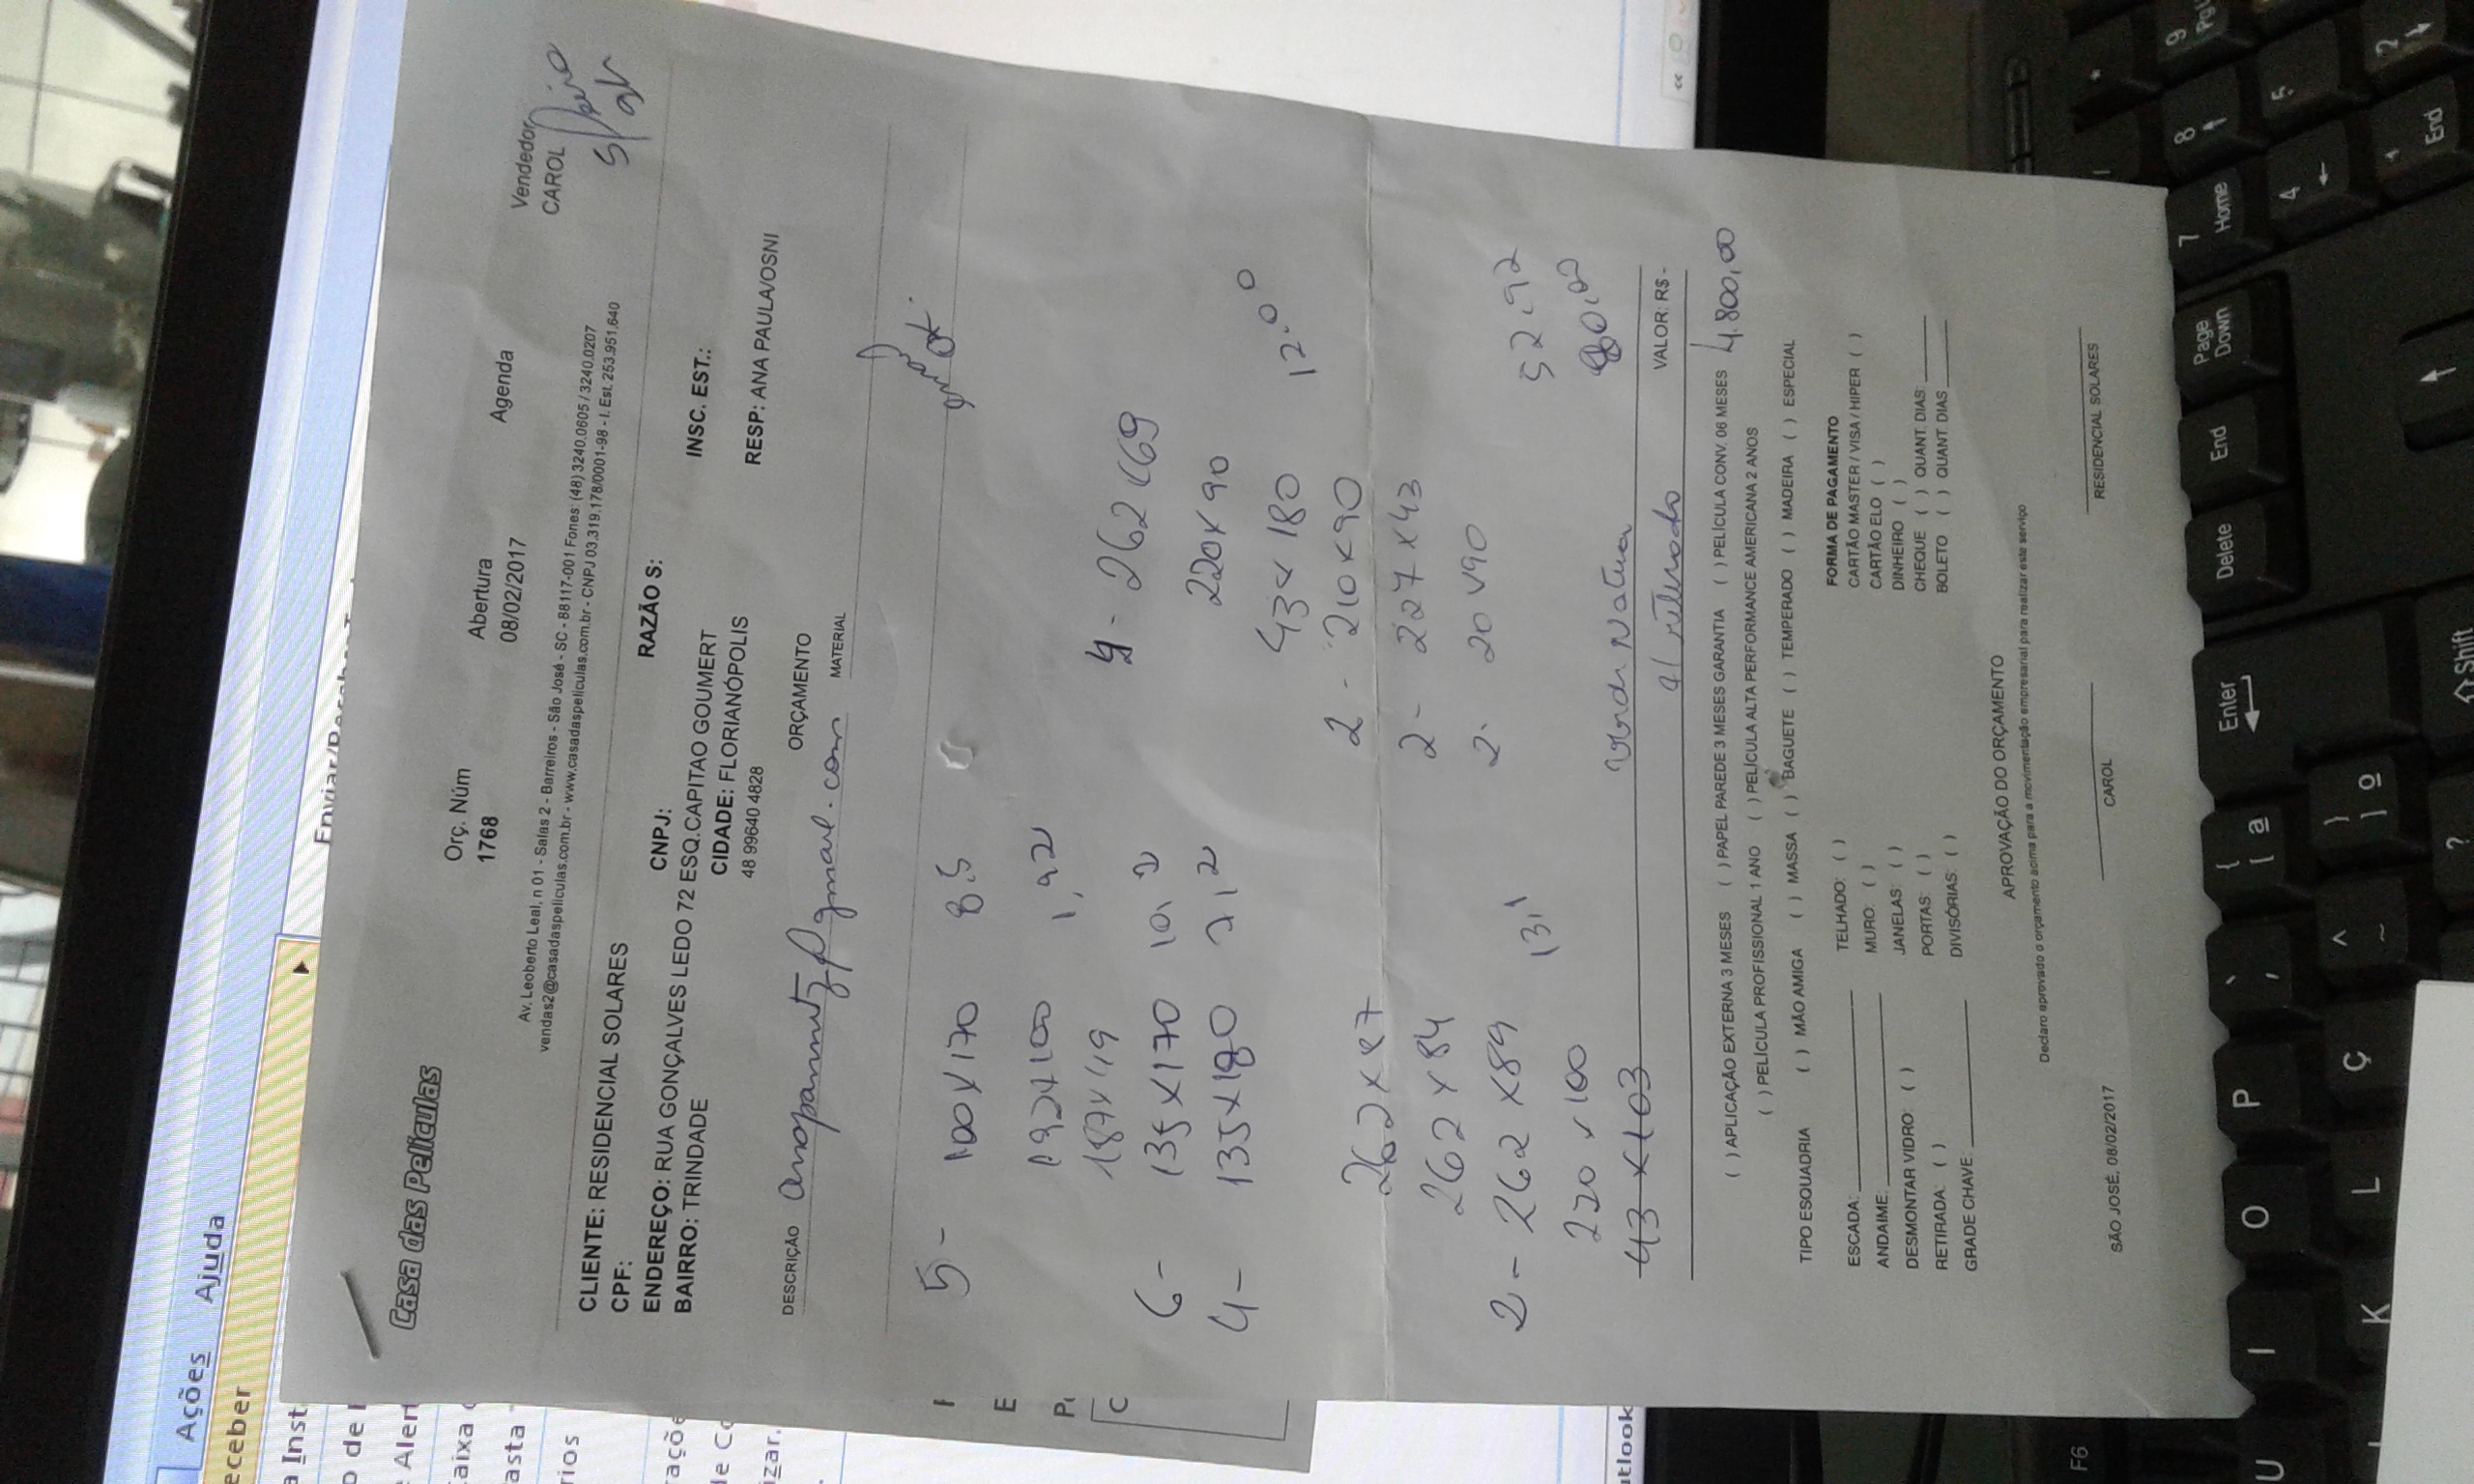 Casa das Películas
Orç. Núm
1768
Abertura
08/02/2017
Agenda
Vendedor
CAROL
Av. Leoberto Leal, n 01 - Salas 2 - Barreiros - São José - SC - 88117-001 Fones: (48) 3240.0605 / 3240.0207
vendas2@casadaspeliculas.com.br - www.casadaspeliculas.com.br - CNPJ 03.319.178/0001-98 - I. Est. 253.951.640
CLIENTE: RESIDENCIAL SOLARES RAZÃO S:
CPF: CNPJ: INSC. EST.:
ENDEREÇO: RUA GONÇALVES LEDO 72 ESQ.CAPITAO GOUMERT
BAIRRO: TRINDADE CIDADE: FLORIANÓPOLIS RESP: ANA PAULA/OSNI
48 99640 4828
ORÇAMENTO
DESCRIÇÃO MATERIAL
5 - 100 x 170 8.5
192 x 100 1,92
187 x 119
6 - 135 x 170 10,2
4 - 135 x 180 21,2
262 x 87
262 x 84
2 - 262 x 89 13,1
220 x 100
43 x 103
4 - 262 x 69
220 x 90
43 x 180 12.00
2 - 210 x 90
2 - 227 x 43
2. 20 x 90
52.92
VALOR: R$-
( ) APLICAÇÃO EXTERNA 3 MESES ( ) PAPEL PAREDE 3 MESES GARANTIA ( ) PELÍCULA CONV. 06 MESES 4.800,00
( ) PELÍCULA PROFISSIONAL 1 ANO ( ) PELÍCULA ALTA PERFORMANCE AMERICANA 2 ANOS
TIPO ESQUADRIA ( ) MÃO AMIGA ( ) MASSA ( ) BAGUETE ( ) TEMPERADO ( ) MADEIRA ( ) ESPECIAL
ESCADA: TELHADO: ( )
ANDAIME: MURO: ( )
DESMONTAR VIDRO: ( ) JANELAS: ( )
RETIRADA: ( ) PORTAS: ( )
GRADE CHAVE: DIVISÓRIAS: ( )
FORMA DE PAGAMENTO
CARTÃO MASTER / VISA / HIPER ( )
CARTÃO ELO ( )
DINHEIRO ( )
CHEQUE ( ) QUANT. DIAS:
BOLETO ( ) QUANT DIAS
APROVAÇÃO DO ORÇAMENTO
Declaro aprovado o orçamento acima para a movimentação empresarial para realizar este serviço
SÃO JOSÉ, 08/02/2017
CAROL
RESIDENCIAL SOLARES
Ações Ajuda
eceber
Delete
End
Page Down
7 Home
8
9
4
5
1 End
2
Enter
Shift
F6
U
I
O
P
K
L
Ç